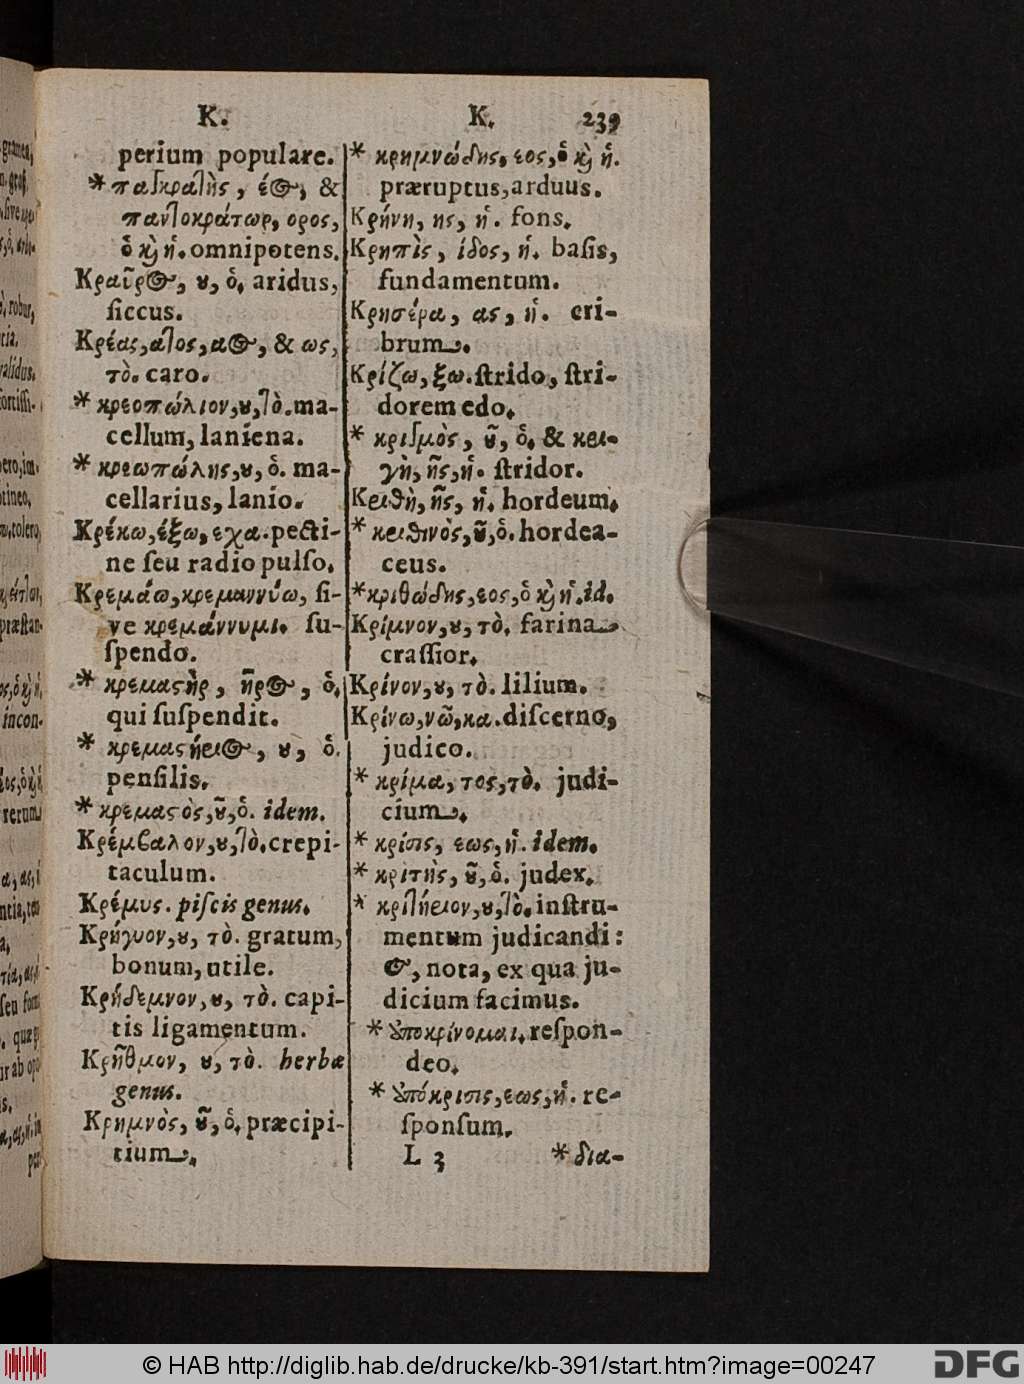 K.
perium populare.
* παγκρατὴς, έος, &
παντοκράτωρ, ορος,
ὁ κὶ ἡ. omnipotens.
Κραῦρος, ȣ, ὁ. aridus,
ſiccus.
Κρέας, ατος, αος, & ως,
τὸ. caro.
* κρεοπώλιον, ȣ, τὸ. ma-
cellum, laniena.
* κρεωπώλης, ȣ, ὁ. ma-
cellarius, lanio.
Κρέκω, έξω, εχα. pecti-
ne ſeu radio pulſo.
Κρεμάω, κρεμαννύω, ſi-
ve κρεμάννυμι. ſu-
ſpendo.
* κρεμαϛὴρ, ῆρος, ὁ.
qui ſuſpendit.
* κρεμαϛήριος, ȣ, ὁ.
penſilis.
* κρεμαϛὸς, ȣ͂, ὁ. idem.
Κρέμβαλον, ȣ, τὸ. crepi-
taculum.
Κρέμυς. piſcis genus.
Κρήγυον, ȣ, τὸ. gratum,
bonum, utile.
Κρήδεμνον, ȣ, τὸ. capi-
tis ligamentum.
Κρῆθμον, ȣ, τὸ. herbæ
genus.
Κρημνὸς, ȣ͂, ὁ. præcipi-
tium.
K. 239
* κρημνώδης, εος, ὁ κὶ ἡ.
præruptus, arduus.
Κρήνη, ης, ἡ. fons.
Κρηπὶς, ίδος, ἡ. baſis,
fundamentum.
Κρησέρα, ας, ἡ. cri-
brum.
Κρίζω, ξω. ſtrido, ſtri-
dorem edo.
* κριγμὸς, ȣ͂, ὁ. & κρι-
γὴ, ῆς, ἡ. ſtridor.
Κριθὴ, ῆς, ἡ. hordeum.
* κριθινὸς, ȣ͂, ὁ. hordea-
ceus.
* κριθώδης, εος, ὁ κὶ ἡ. id.
Κρίμνον, ȣ, τὸ. farina
craſſior.
Κρίνον, ȣ, τὸ. lilium.
Κρίνω, νῶ, κα. diſcerno,
judico.
* κρίμα, τος, τὸ. judi-
cium.
* κρίσις, εως, ἡ. idem.
* κριτὴς, ȣ͂, ὁ. judex.
* κριτήριον, ȣ, τὸ. inſtru-
mentum judicandi:
&, nota, ex qua ju-
dicium facimus.
* ὑποκρίνομαι. reſpon-
deo.
* ὑπόκρισις, εως, ἡ. re-
ſponſum.
L 3 * δια-
© HAB http://diglib.hab.de/drucke/kb-391/start.htm?image=00247
DFG